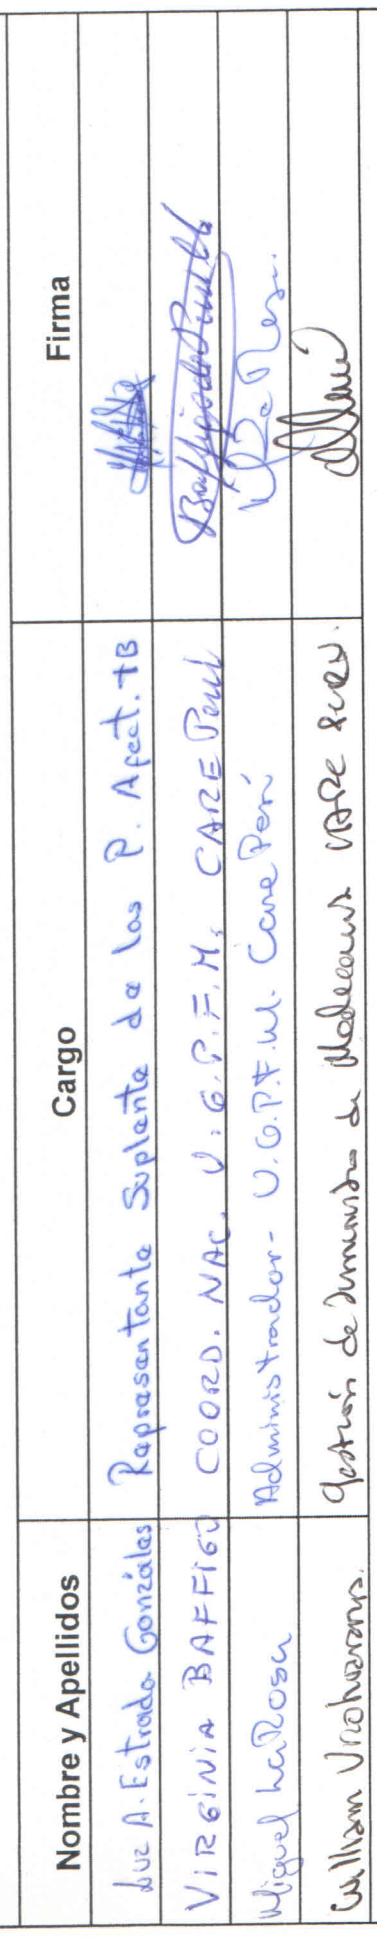 Nombre y Apellidos Cargo Firma
Luz A. Estrada Gonzáles Representante Suplente de las P. Afect. TB
VIRGINIA BAFFIGO COORD. NAC. U.G.P.F.M. CARE Perú
Miguel La Rosa Administrador - U.G.P.F.M. Care Perú
William Gestión de Suministro de CARE PERU.